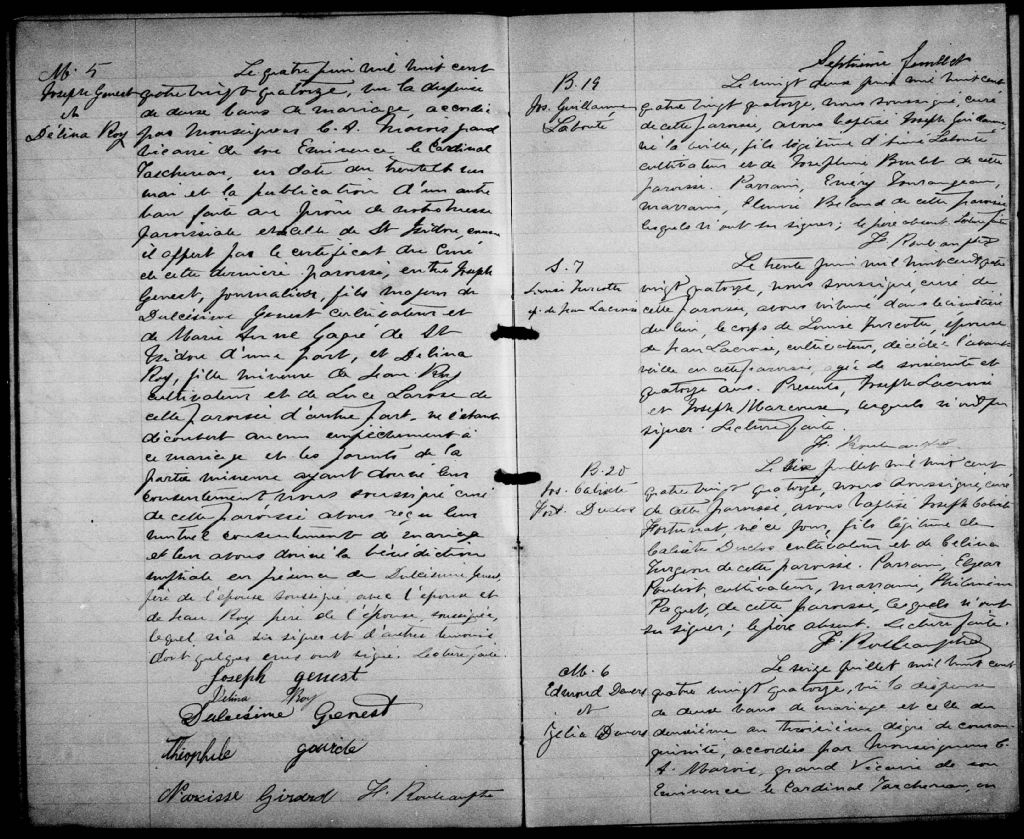 M. 5
Joseph Genest
et
Délina Roy
Le quatre juin mil huit cent
quatre vingt quatorze, vu la dispense
de deux bans de mariage, accordée
par Monseigneur C. A. Marois, grand
vicaire de son Eminence le Cardinal
Taschereau, en date du trente et un
mai et la publication d'un autre
ban faite au prône de notre messe
paroissiale et celle de St Isidore comme
il appert par le certificat du Curé
de cette dernière paroisse, entre Joseph
Genest, journalier, fils majeur de
Dulcisime Genest cultivateur et
de Marie Anne Gagné de St
Isidore d'une part, et Délina
Roy, fille mineure de Jean Roy
cultivateur et de Luce Larose de
cette paroisse d'autre part, ne s'étant
découvert aucun empêchement à
ce mariage et les parents de la
partie mineure ayant donné leur
consentement nous soussigné curé
de cette paroisse avons reçu leur
mutuel consentement de mariage
et leur avons donné la bénédiction
nuptiale en présence de Dulcisime Genest,
père de l'époux soussigné, avec l'épouse et
de Jean Roy père de l'épouse, soussignée,
lequel n'a su signer et d'autres témoins
dont quelques uns ont signé. Lecture faite.
Joseph genest
Délina Roy
Dulcisime Genest
théophile gourde
Narcisse Girard F. Rouleau ptre
Septième feuillet
B. 19
Jos. Guillaume
Labonté
Le vingt deux juin mil huit cent
quatre vingt quatorze, nous soussigné, curé
de cette paroisse, avons baptisé Joseph Guillaume,
né la veille, fils légitime d'Aimé Labonté
cultivateur et de Josephine Boulet de cette
paroisse. Parrain, Eméry Tourangeau,
marraine, Boland de cette paroisse
lesquels n'ont su signer; le père absent.
F. Rouleau ptre
S. 7
Louise Turcotte
ép. de Jean Lacroix
Le trente juin mil huit cent quatre
vingt quatorze, nous soussigné, curé de
cette paroisse, avons inhumé dans le cimetière
du lieu, le corps de Louise Turcotte, épouse
de Jean Lacroix, cultivateur, décédée l'avant
veille en cette paroisse, agée de soixante et
quatorze ans. Présents, Joseph Lacroix
et Joseph Marcoux, lesquels n'ont pu
signer. Lecture faite.
F. Rouleau ptre
B. 20
Jos. Calixte
Fort. Duclos
Le six juillet mil huit cent
quatre vingt quatorze, nous soussigné, curé
de cette paroisse, avons baptisé Joseph Calixte
Fortunat, né ce jour, fils légitime de
Calixte Duclos cultivateur et de Célina
Turgeon de cette paroisse. Parrain, Elzear
Pouliot, cultivateur, marraine, Philomène
Paquet, de cette paroisse, lesquels n'ont
su signer; le père absent. Lecture faite.
F. Rouleau ptre
M. 6
Edmond
et
Zélia
Le seize juillet mil huit cent
quatre vingt quatorze, vu la dispense
de deux bans de mariage et celle du
deuxième au troisième degré de consan-
guinité, accordées par Monseigneur C.
A. Marois, grand Vicaire de son
Eminence le Cardinal Taschereau, en